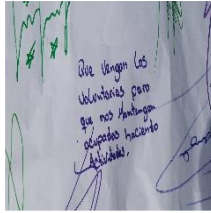 Que vengan los
voluntarios para
que nos mantengan
ocupados haciendo
Actividades.